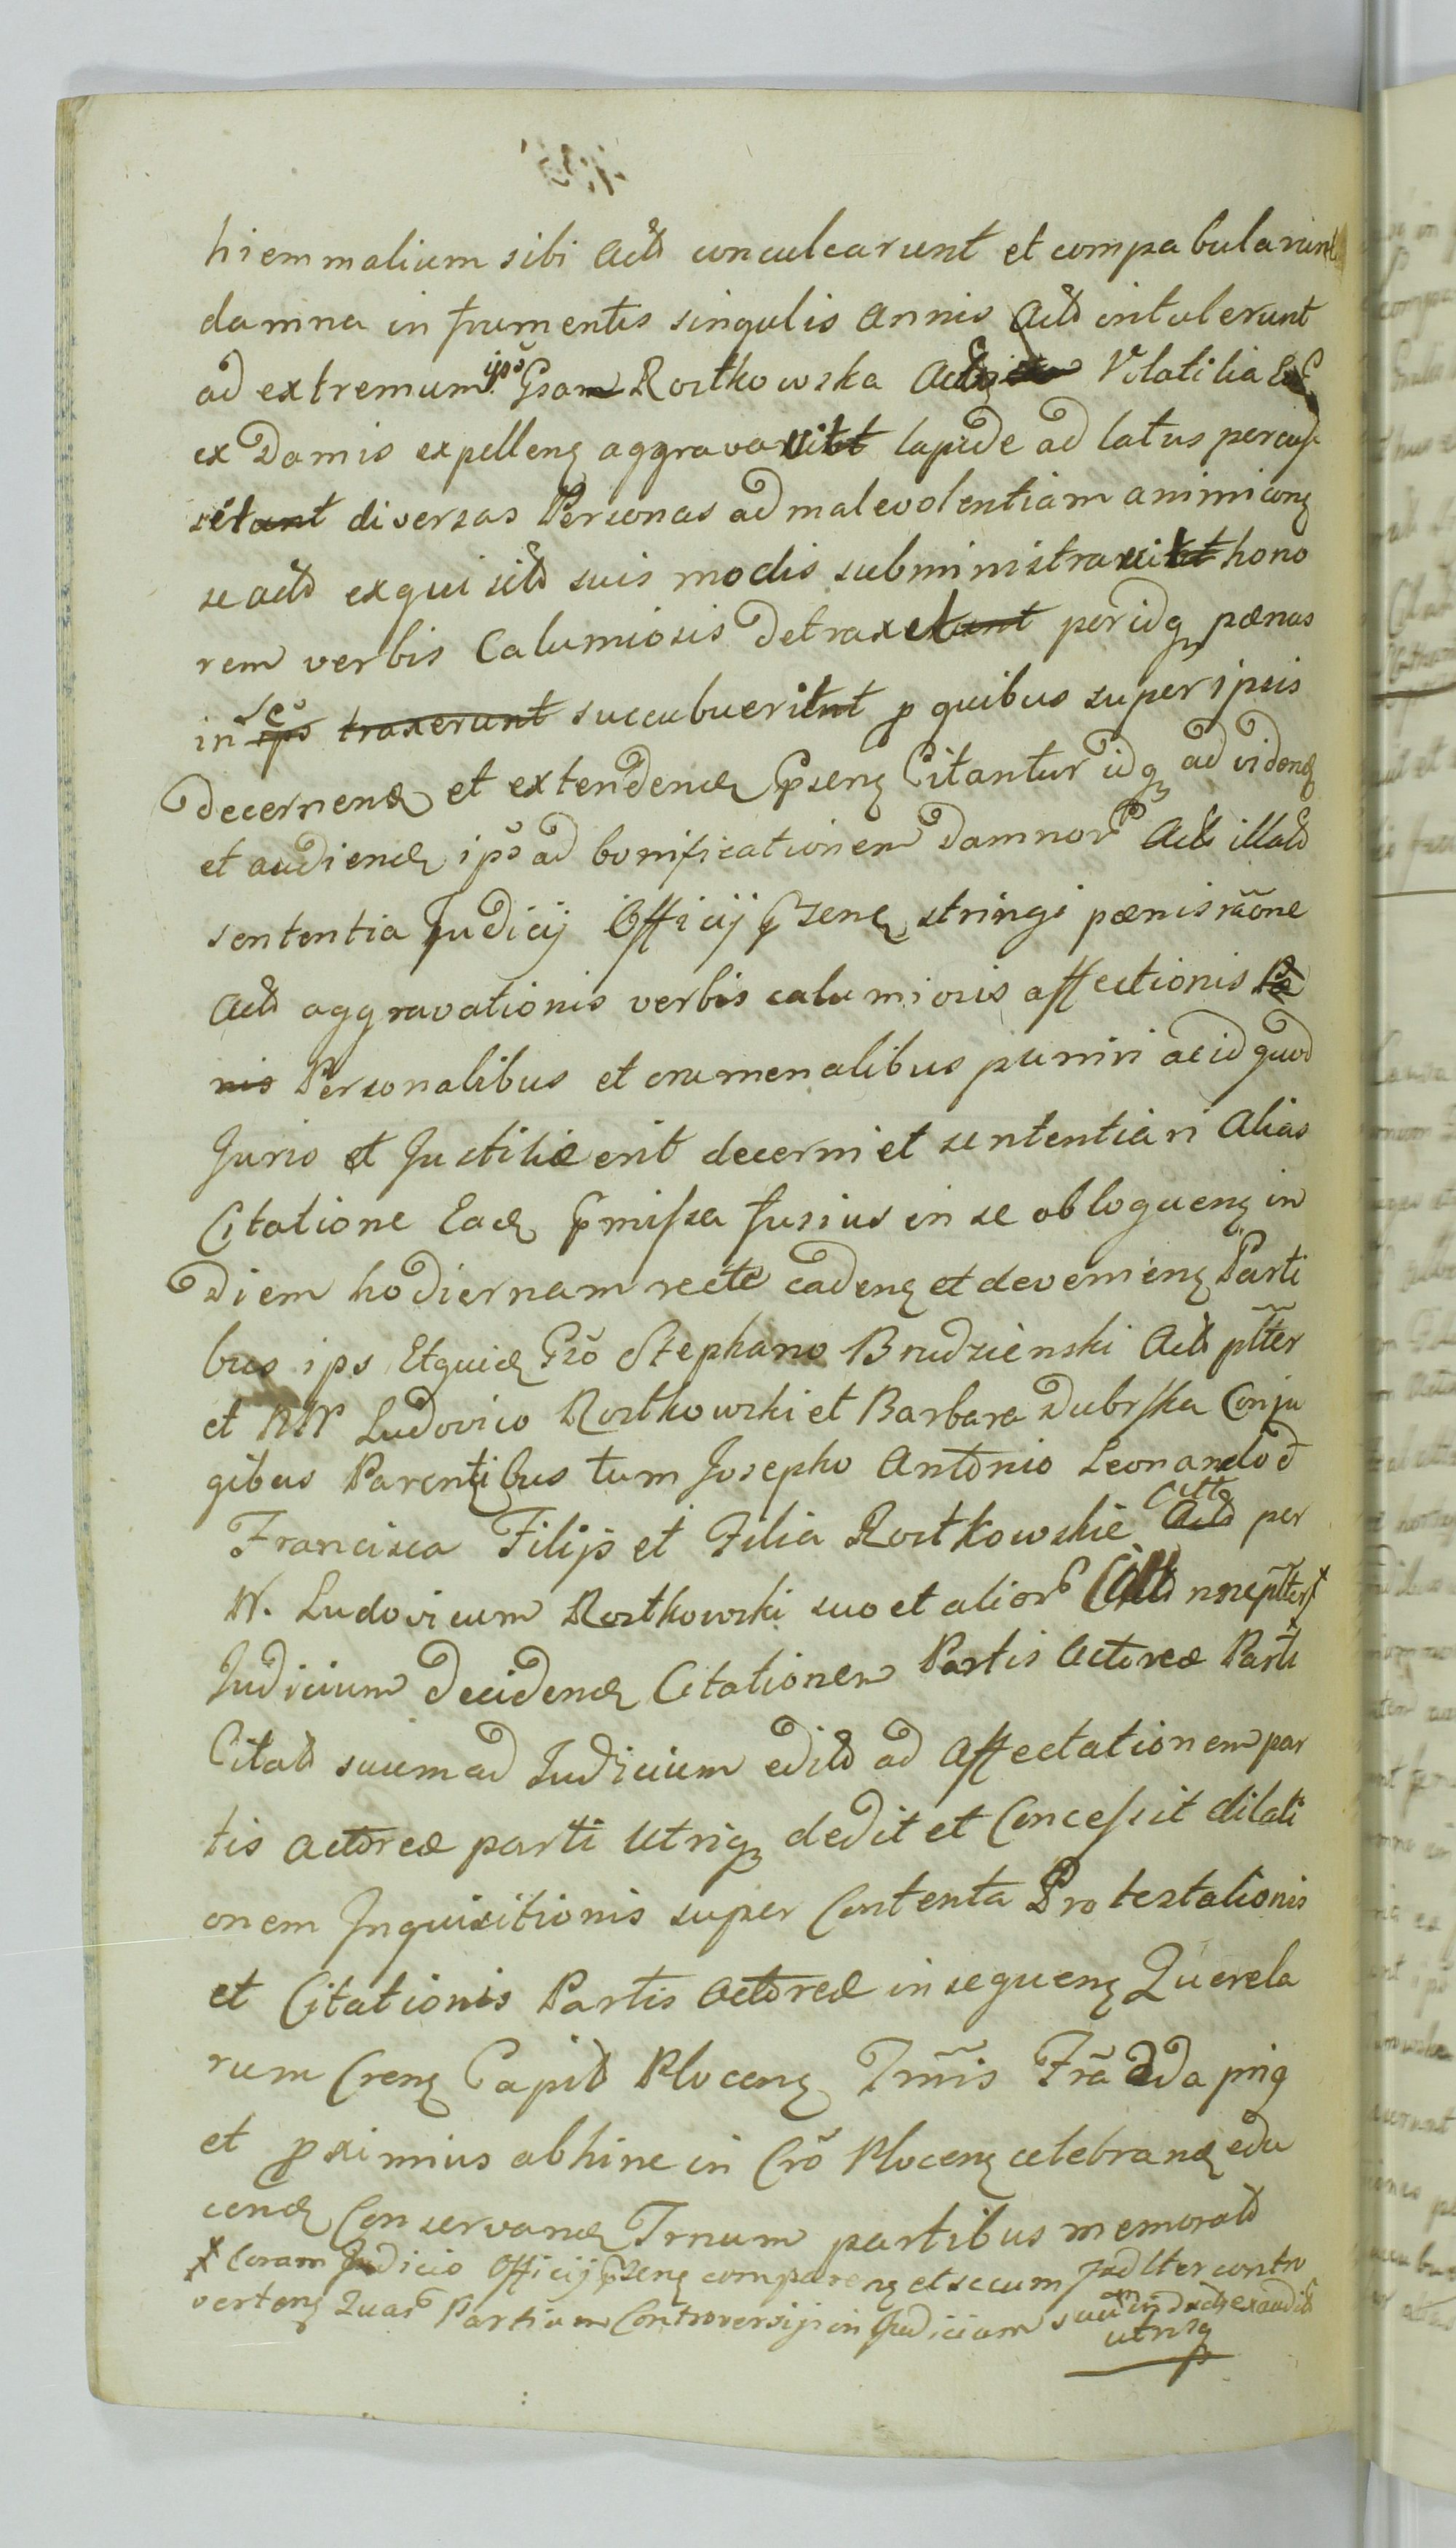 hiemmalium sibi Actd conculcarunt et compabularunt
damna in frumentis singulis Annis Actd intulerunt
ad extremum ips Gsam Rostkowska Volatilia
ex Damis expellenz aggravavit lapide ad latus percus
set diversas Personas ad malevolentiam animi conz
se actd exquisitd suis modis subministravit hono
rem verbis Calumiosis detraxet per idq pænas
in se traxerunt succubuerit p quibus super ipsis
decernend et extendend Pseng Citantur idq ad vidend
et audiend ips ad bonificationem damnor Actd illatd
sententia Judicij Officij pseng stringi pænis raone
Actd aggravationis verbis calumiosis affectionis Pæ
nis Personalibus et crumenalibus puniri ac id quod
Juris et Justitiæ erit decerni et sententiari Alias
Citatione Ead pmissa fusius in se obloquenz in
diem hodiernam recte cadenz et devenienz Parti
bus ips Etquid Gso Stephano Brudzienski Actd ptter
et NN Ludovico Rostkowski et Barbara Dubrska Conju
gibus Parentibus tum Josepho Antonio Leonardo d
Francisca Filijs et Filia Rostkowskie Citt Actd per
N. Ludovicum Rostkowski suo et alior Cittd nneptter x
Judicium decidend Citationem Partis Actoreæ Parti
Citatd suum ad Judicium editd ad affectationem par
tis actoreæ parti utriq dedit et Concessit dilati
onem Inquisitionis super Contenta Protestationis
et Citationis Partis Actoreæ in sequenz Querela
rum Crenz Capitd Plocenz Trmis Fra 2da
et pximius abhinc in Cro Plocenz celebrand edu
cend Conservand Trnum partibus memoratd
x Coram Judicio Officij pseng comparenz et secum Judlter contro
vertenz Quar Partium Controversijs in Judicium suum inductis exauditd
utrisq